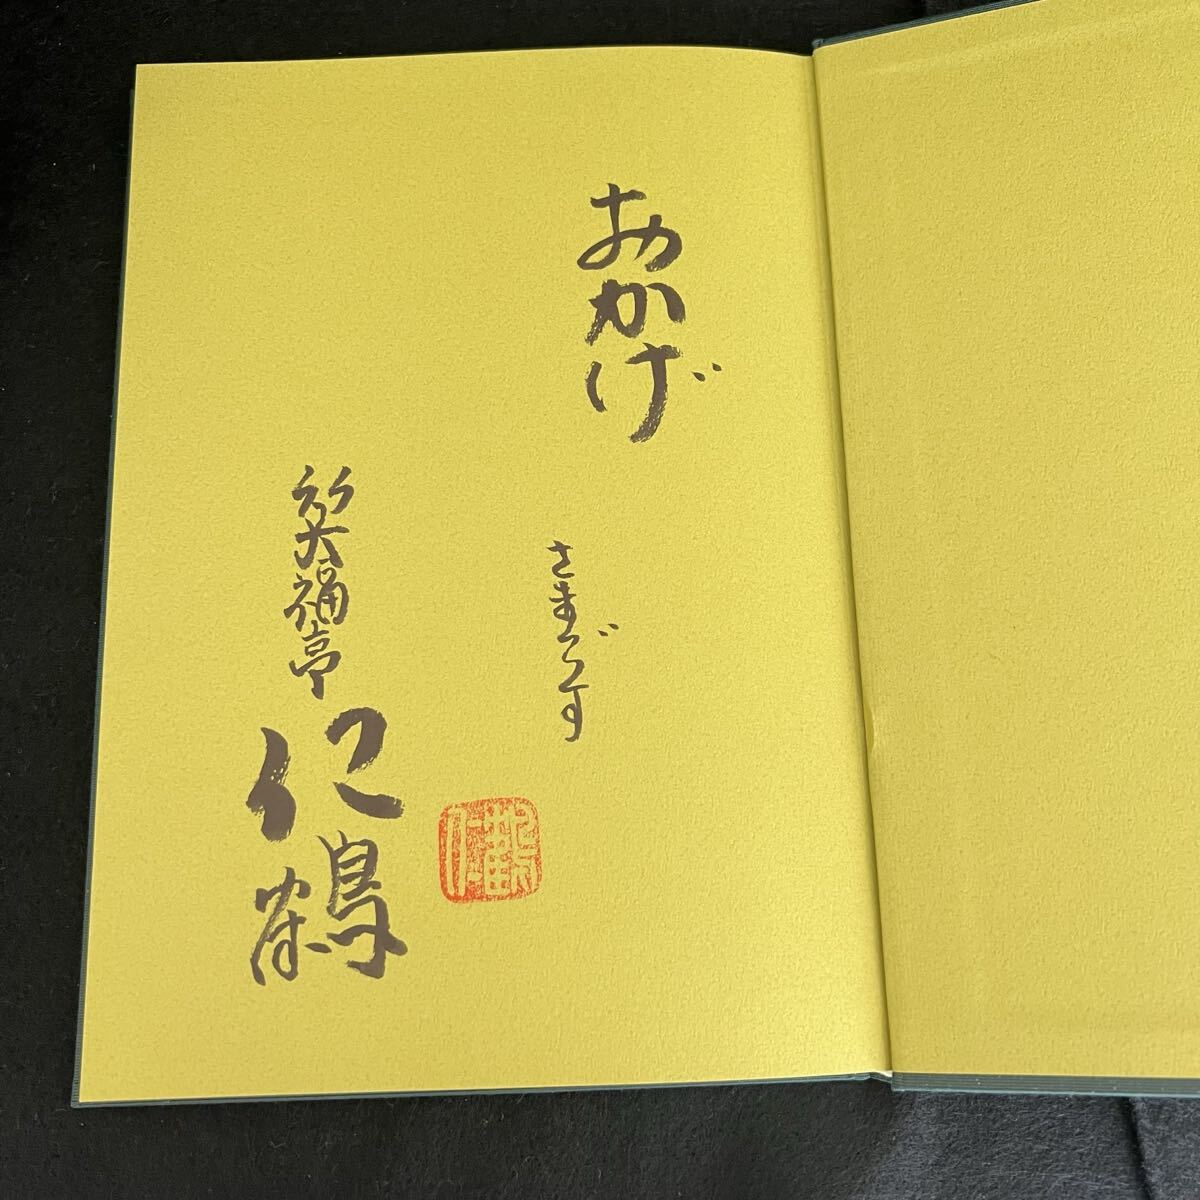 おかげ
さまです
笑福亭
仁鶴